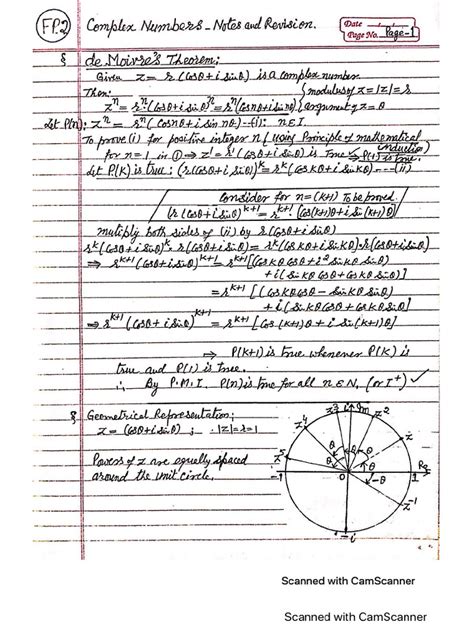 FP.2
Complex Numbers - Notes and Revision.
Date
Page No. Page-1
§ de Moivre's Theorem:
Given z = r(cosθ+i sinθ) is a complex number.
Then: {modulus of z = |z| = r
zⁿ = rⁿ(cosθ+i sinθ)ⁿ = rⁿ(cosnθ+i sinnθ) {argument of z = θ
Let P(n): zⁿ = rⁿ(cosnθ+i sin nθ) --(i): n∈I.
To prove (i) for positive integer n (using Principle of mathematical induction)
for n=1 in ① ⇒ z¹ = r¹(cosθ+i sinθ) is true ⇒ P(1) is true.
Let P(K) is true: (r(cosθ+i sinθ))ᴷ = rᴷ(cosKθ+i sinKθ) --- (ii)
Consider for n=(K+1) To be proved.
(r(cosθ+i sinθ))ᴷ⁺¹ = rᴷ⁺¹ [cos(K+1)θ+i sin(K+1)θ]
multiply both sides of (ii) by r(cosθ+i sinθ)
rᴷ(cosθ+i sinθ)ᴷ. r(cosθ+i sinθ) = rᴷ(cosKθ+i sinKθ)·r(cosθ+i sinθ)
⇒ rᴷ⁺¹(cosθ+i sinθ)ᴷ⁺¹ = rᴷ⁺¹[(cosKθ cosθ+i² sinKθ sinθ)
+i(sinKθ cosθ+cosKθ sinθ)]
= rᴷ⁺¹ [(cosKθ cosθ - sinKθ sinθ)
+i(sinKθ cosθ+cosKθ sinθ)]
⇒ rᴷ⁺¹(cosθ+i sinθ)ᴷ⁺¹ = rᴷ⁺¹ [cos(K+1)θ + i sin(K+1)θ]
⇒ P(K+1) is true whenever P(K) is
true and P(1) is true.
∴ By P.M.I. P(n) is true for all n∈N, (or I⁺) ✓
§ Geometrical Representation:
z = (cosθ+i sinθ) ; |z|=r=1
Powers of z are equally spaced
around the unit circle.
z⁵ z⁴ z³ i Im z² z
θ θ θ θ θ -θ
-1 0 1 Re
z⁻¹
-i
Scanned with CamScanner
Scanned with CamScanner